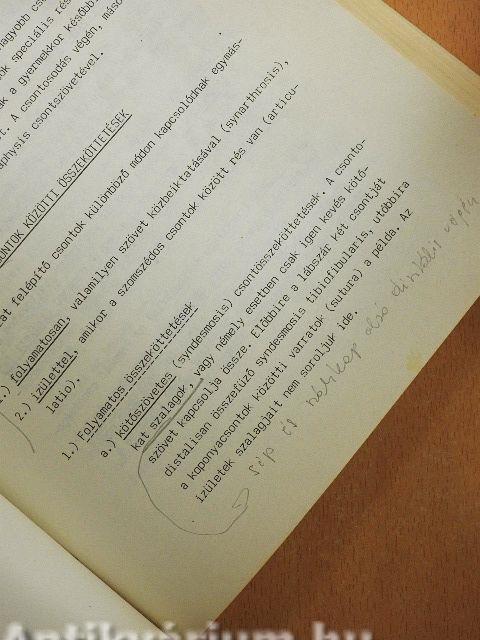 nagyobb
ok speciális
ak a gyermekkor később
A csontosodás végén,
csontszövetével.
CSONTOK KÖZÖTTI ÖSSZEKÖTTETÉSEK
felépítő csontok különböző módon kapcsolódnak egymás-
1.) folyamatosan, valamilyen szövet közbeiktatásával (synarthrosis),
2.) ízülettel, amikor a szomszédos csontok között rés van (articu-
latio).
1.) Folyamatos összeköttetések
a.) kötőszövetes (syndesmosis) csontösszeköttetések. A csonto-
kat szalagok, vagy némely esetben csak igen kevés kötő-
szövet kapcsolja össze. Előbbire a lábszár két csontját
distalisan összefűző syndesmosis tibiofibularis, utóbbira
a koponyacsontok közötti varratok (sutura) a példa. Az
ízületek szalagjait nem soroljuk ide.
síp és alsó
Antikvárium.hu